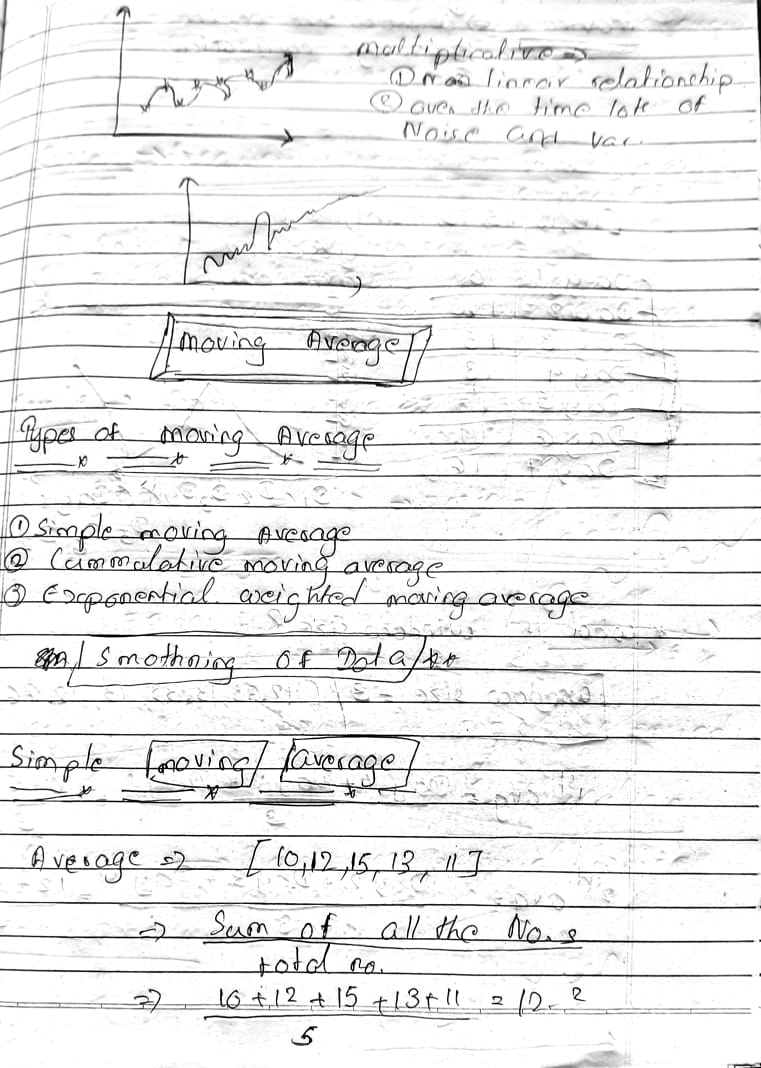 multiplicative ⇒
① Non linear relationship
② over the time lots of
Noise and var.
Moving Average
Types of moving Average
① Simple moving Average
② Cummulative moving average
③ Exponential weighted moving average
Smothning of Data **
Simple moving average
Average ⇒ [10,12,15,13,11]
⇒ Sum of all the No.s
total no.
⇒ 10+12+15+13+11 = 12.2
5